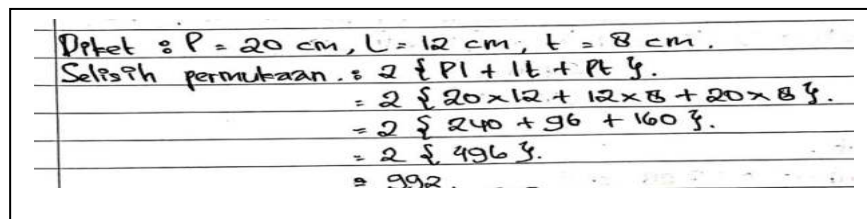 Diket : P = 20 cm, L = 12 cm, t = 8 cm.
Selisih permukaan : 2 {Pl + lt + Pt}.
= 2 {20 x 12 + 12 x 8 + 20 x 8}.
= 2 {240 + 96 + 160}.
= 2 {496}.
= 992.